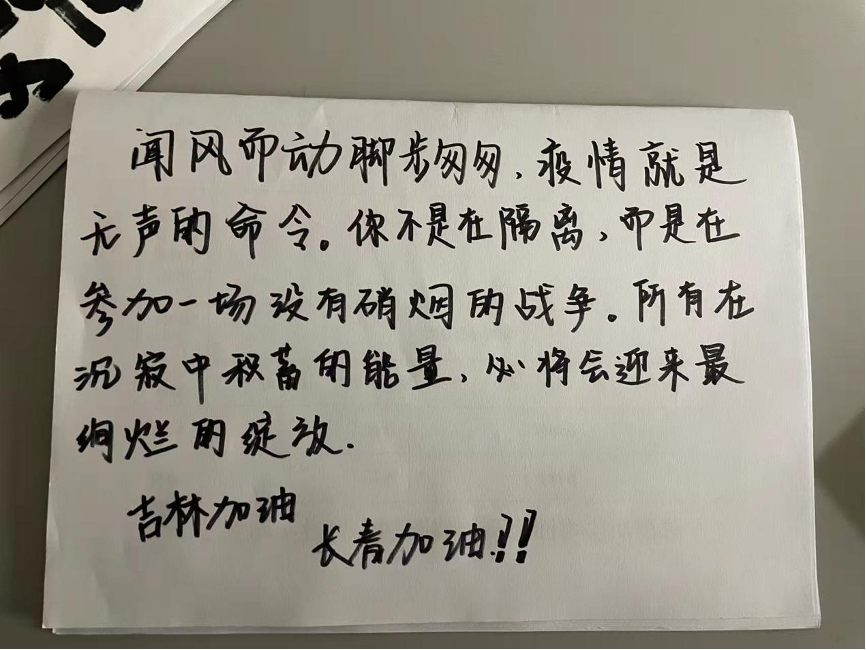 闻风而动脚步匆匆，疫情就是
无声的命令。你不是在隔离，而是在
参加一场没有硝烟的战争。所有在
沉寂中积蓄的能量，必将会迎来最
绚烂的绽放.
吉林加油
长春加油!!!